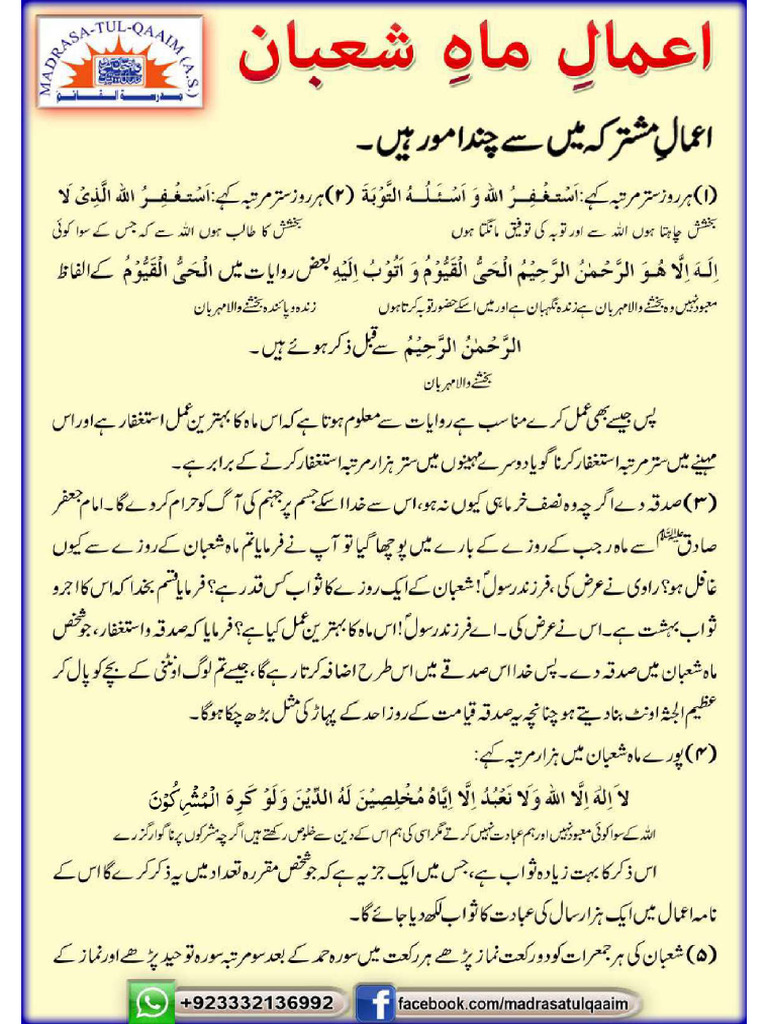 MADRASA-TUL-QAAIM (A.S)
مدرسۃ القائم
اعمالِ ماہِ شعبان
اعمالِ مشترکہ میں سے چند امور ہیں۔
(۱) ہر روز ستر مرتبہ کہے: اَسْتَغْفِرُ اللہَ وَ اَسْئَلُہُ التَّوْبَۃَ (۲) ہر روز ستر مرتبہ کہے: اَسْتَغْفِرُ اللہَ الَّذِیْ لَا
بخشش چاہتا ہوں اللہ سے اور توبہ کی توفیق مانگتا ہوں بخشش کا طالب ہوں اللہ سے کہ جس کے سوا کوئی
اِلٰہَ اِلَّا ھُوَ الرَّحْمٰنُ الرَّحِیْمُ الْحَیُّ الْقَیُّوْمُ وَ اَتُوْبُ اِلَیْہِ بعض روایات میں اَلْحَیُّ الْقَیُّوْمُ کے الفاظ
معبود نہیں وہ بخشنے والا مہربان ہے زندہ نگہبان ہے اور میں اسکے حضور توبہ کرتا ہوں زندہ و پائندہ بخشنے والا مہربان
الرَّحْمٰنُ الرَّحِیْمُ سے قبل ذکر ہوئے ہیں۔
بخشنے والا مہربان
پس جیسے بھی عمل کرے مناسب ہے روایات سے معلوم ہوتا ہے کہ اس ماہ کا بہترین عمل استغفار ہے اور اس
مہینے میں ستر مرتبہ استغفار کرنا گویا دوسرے مہینوں میں ستر ہزار مرتبہ استغفار کرنے کے برابر ہے۔
(۳) صدقہ دے اگرچہ وہ نصف خرما ہی کیوں نہ ہو، اس سے خدا اسکے جسم پر جہنم کی آگ کو حرام کردے گا۔ امام جعفر
صادق علیہ السلام سے ماہ رجب کے روزے کے بارے میں پوچھا گیا تو آپ نے فرمایا تم ماہ شعبان کے روزے سے کیوں
غافل ہو؟ راوی نے عرض کی، فرزند رسولؐ! شعبان کے ایک روزے کا ثواب کس قدر ہے؟ فرمایا قسم بخدا کہ اس کا اجر و
ثواب بہشت ہے۔ اس نے عرض کی۔ اے فرزند رسولؐ! اس ماہ کا بہترین عمل کیا ہے؟ فرمایا کہ صدقہ و استغفار، جو شخص
ماہ شعبان میں صدقہ دے۔ پس خدا اس صدقے میں اس طرح اضافہ کرتا رہے گا، جیسے تم لوگ اونٹنی کے بچے کو پال کر
عظیم الجثہ اونٹ بنا دیتے ہو چنانچہ یہ صدقہ قیامت کے روز احد کے پہاڑ کی مثل بڑھ چکا ہوگا۔
(۴) پورے ماہ شعبان میں ہزار مرتبہ کہے:
لاَ اِلٰہَ اِلَّا اللہُ وَلَا نَعْبُدُ اِلَّا اِیَّاہُ مُخْلِصِیْنَ لَہُ الدِّیْنَ وَلَوْ کَرِہَ الْمُشْرِکُوْنَ
اللہ کے سوا کوئی معبود نہیں اور ہم عبادت نہیں کرتے مگر اسی کی ہم اس کے دین سے خلوص رکھتے ہیں اگرچہ مشرکوں پر ناگوار گزرے
اس ذکر کا بہت زیادہ ثواب ہے، جس میں ایک جز یہ ہے کہ جو شخص مقررہ تعداد میں یہ ذکر کرے گا اس کے
نامہ اعمال میں ایک ہزار سال کی عبادت کا ثواب لکھ دیا جائے گا۔
(۵) شعبان کی ہر جمعرات کو دو رکعت نماز پڑھے ہر رکعت میں سورہ حمد کے بعد سو مرتبہ سورہ توحید پڑھے اور نماز کے
+923332136992
facebook.com/madrasatulqaaim